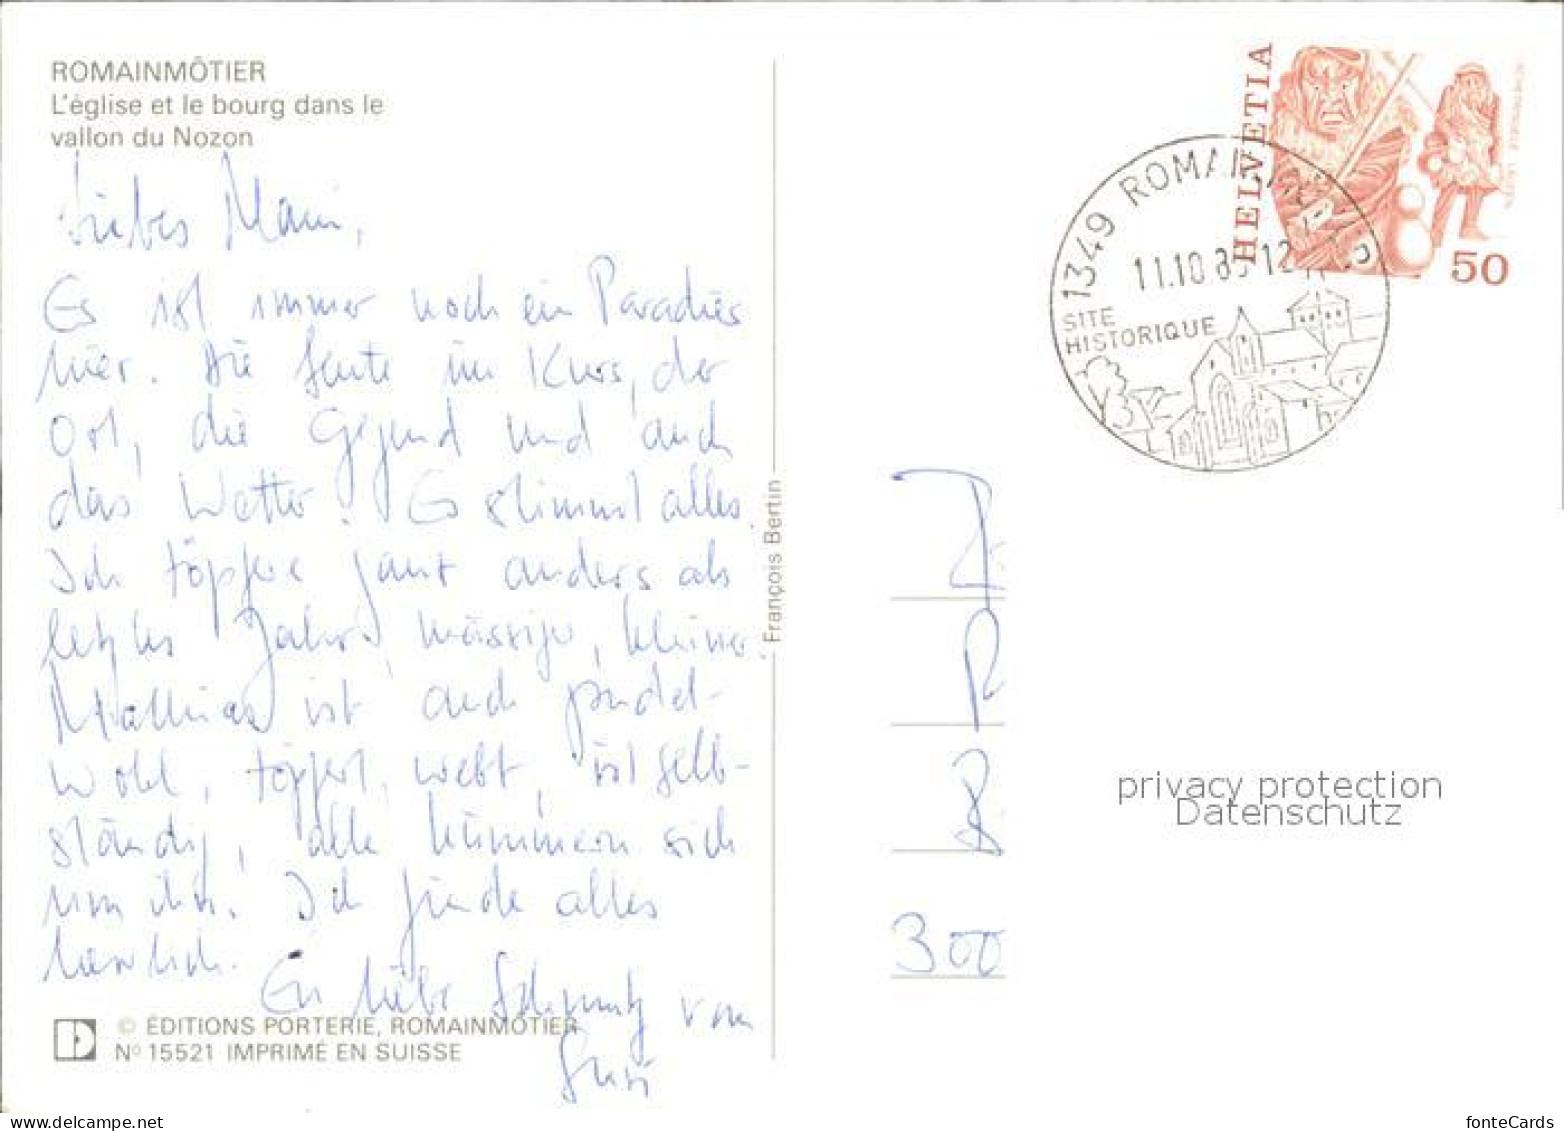 ROMAINMÔTIER
L'église et le bourg dans le
vallon du Nozon
Liebes Mami,
Es ist immer noch ein Paradies
hier. Die Leute im Kurs, der
Ort, die Gegend und auch
das Wetter! Es stimmt alles.
Ich töpfere ganz anders als
letztes Jahr, massiger, kleiner.
Mathias ist auch pudel-
wohl, töpfert, webt, ist selb-
ständig, alle kümmern sich
um ihn. Ich finde alles
herrlich.
En liebe Schmutz vom
Susi
© ÉDITIONS PORTERIE, ROMAINMÔTIER
Nº 15521 IMPRIMÉ EN SUISSE
François Bertin
HELVETIA
50
1349 ROMAINMÔ
11.10.8 -12
SITE
HISTORIQUE
300
privacy protection
Datenschutz
www.delcampe.net
fonteCards